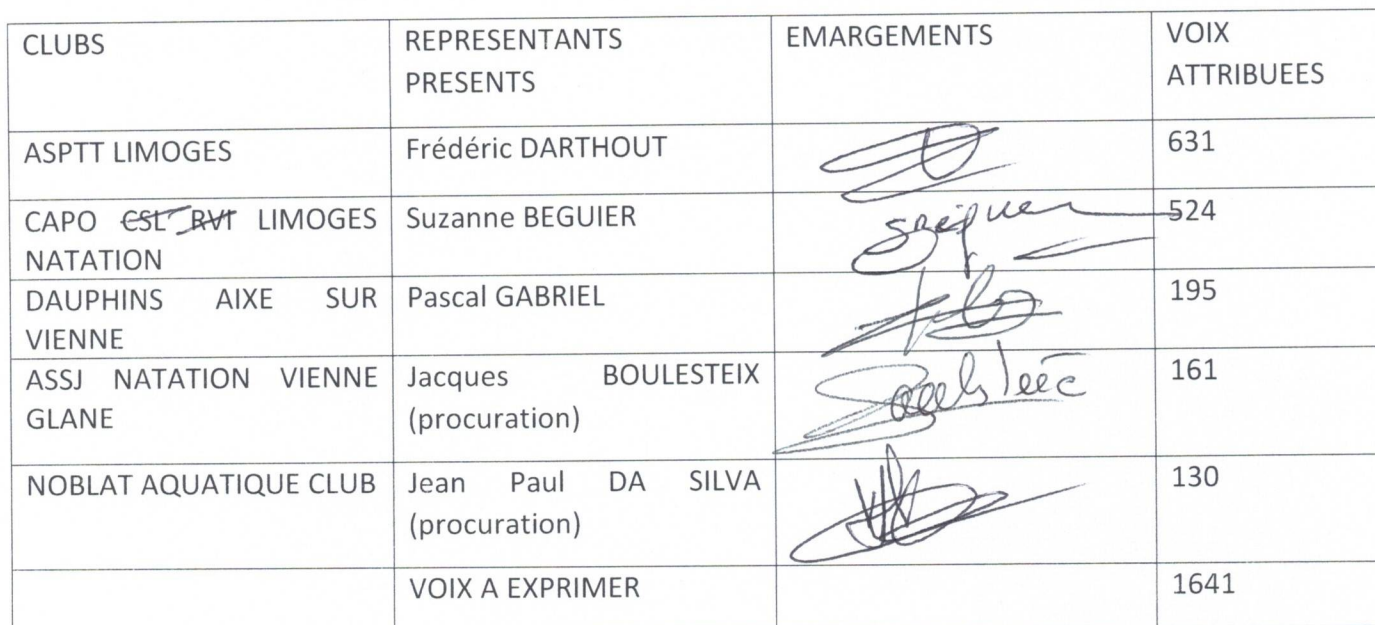 CLUBS
REPRESENTANTS
PRESENTS
EMARGEMENTS
VOIX
ATTRIBUEES
ASPTT LIMOGES
Frédéric DARTHOUT
631
CAPO CSL RVI LIMOGES
NATATION
Suzanne BEGUIER
524
DAUPHINS AIXE SUR
VIENNE
Pascal GABRIEL
195
ASSJ NATATION VIENNE
GLANE
Jacques BOULESTEIX
(procuration)
161
NOBLAT AQUATIQUE CLUB
Jean Paul DA SILVA
(procuration)
130
VOIX A EXPRIMER
1641